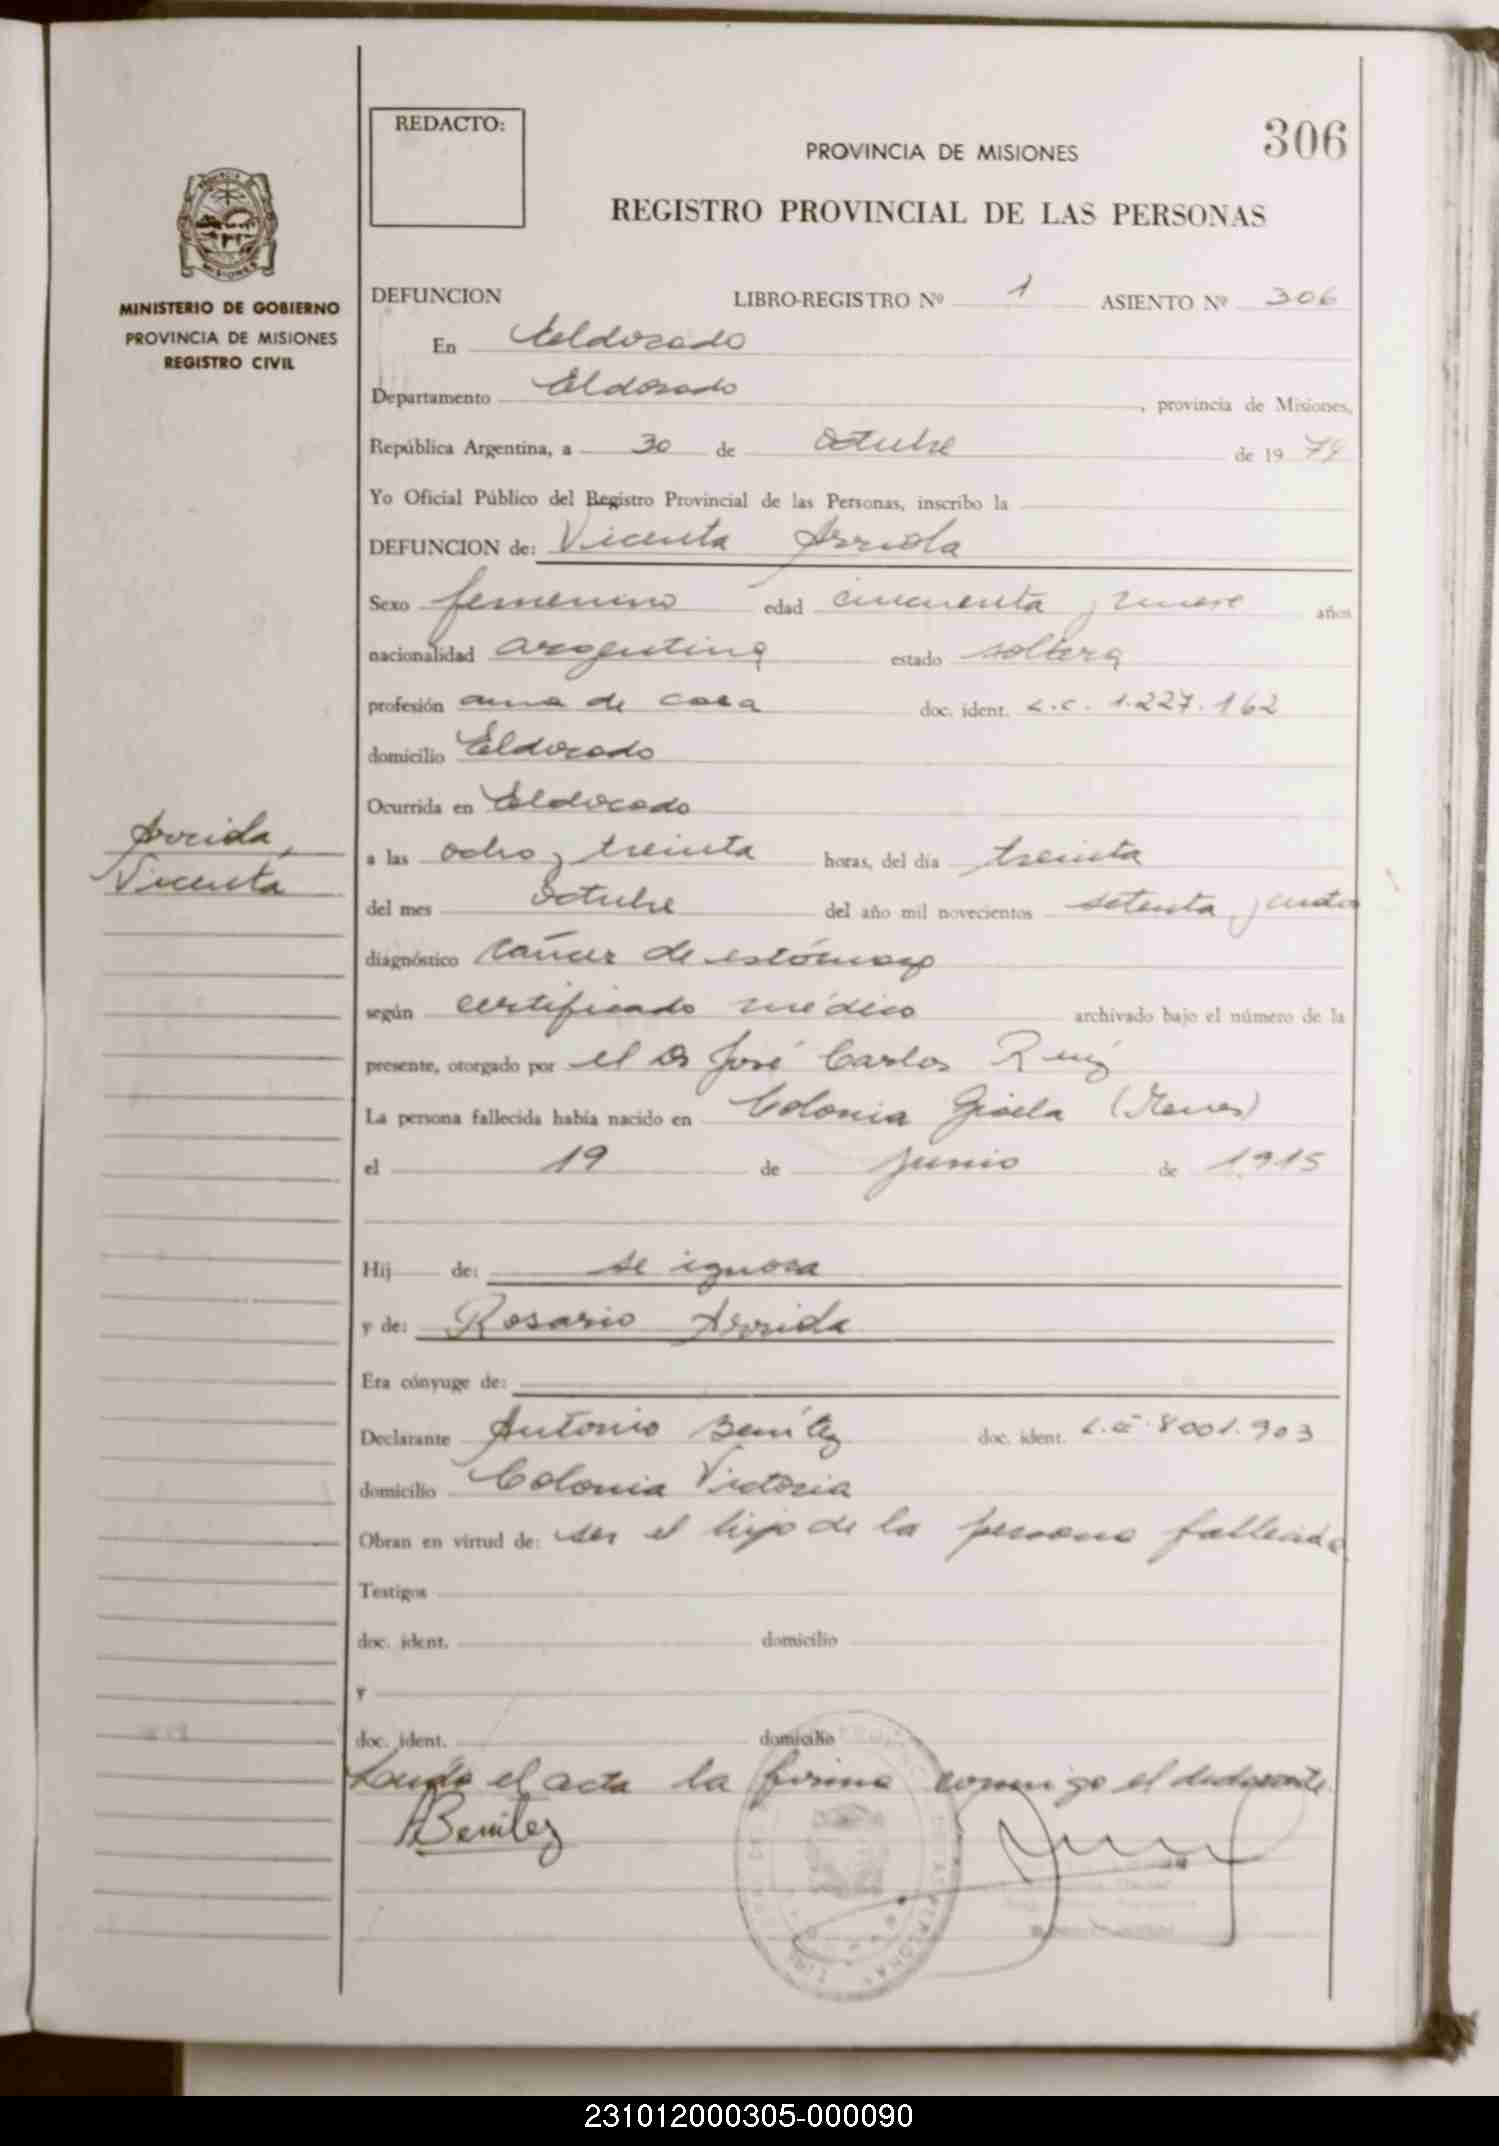 REDACTO:
306
PROVINCIA DE MISIONES
REGISTRO PROVINCIAL DE LAS PERSONAS
MINISTERIO DE GOBIERNO
PROVINCIA DE MISIONES
REGISTRO CIVIL
DEFUNCION LIBRO-REGISTRO Nº 1 ASIENTO Nº 306
En Eldorado
Departamento Eldorado, provincia de Misiones,
República Argentina, a 30 de octubre de 19 74
Yo Oficial Público del Registro Provincial de las Personas, inscribo la
DEFUNCION de: Vicenta Arriola
Sexo femenino edad cincuenta y nueve años
nacionalidad argentina estado soltera
profesión ama de casa doc. ident. L.C. 1.227.162
domicilio Eldorado
Ocurrida en Eldorado
Arriola,
Vicenta
a las ocho y treinta horas, del día treinta
del mes octubre del año mil novecientos setenta y cuatro
diagnóstico cáncer de estómago
según certificado médico archivado bajo el número de la
presente, otorgado por el Dr José Carlos Ruiz
La persona fallecida había nacido en Colonia Gisela (Mnes)
el 19 de junio de 1915
Hij de: se ignora
y de: Rosario Arriola
Era cónyuge de:
Declarante Antonio Benítez doc. ident. L.E. 8001.903
domicilio Colonia Victoria
Obran en virtud de: ser el hijo de la persona fallecida
Testigos
doc. ident. domicilio
y
doc. ident. domicilio
Leída el acta la firma conmigo el declarante.
ABenitez
231012000305-000090